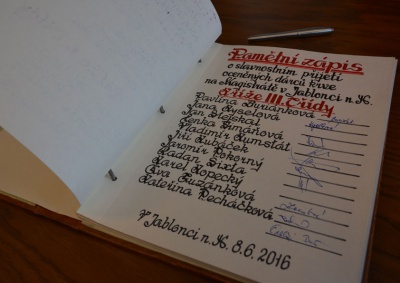 Pamětní zápis
o slavnostním přijetí
oceněných dárců krve
na Magistrátě v Jablonci n. N.
Kříže III. Třídy
Pavlína Buriánková
Jana Kyselová
Jan Stejskal
Lenka Zimáňová
Vladimír Rumštát
Jiří Lubáček
Jaromír Pokorný
Radan Sixta
Karel Kopecký
Eva Buriánková
Kateřina Pecháčková
V Jablonci n. N. 8. 6. 2016